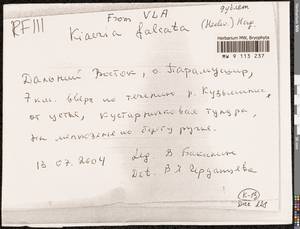 RF III
From VLA
дублет
Kiaeria falcata (Hedw.) Hag.
Herbarium MW, Bryophyta
MW 9 113 237
Дальний Восток, о. Парамушир,
7 км. вверх по течению р. Кузьминка,
от устья, кустарничковая тундра,
на мелкоземе по берегу ручья.
13 07. 2004 Leg. В. Бакалин
Det. В. Я. Черданцева